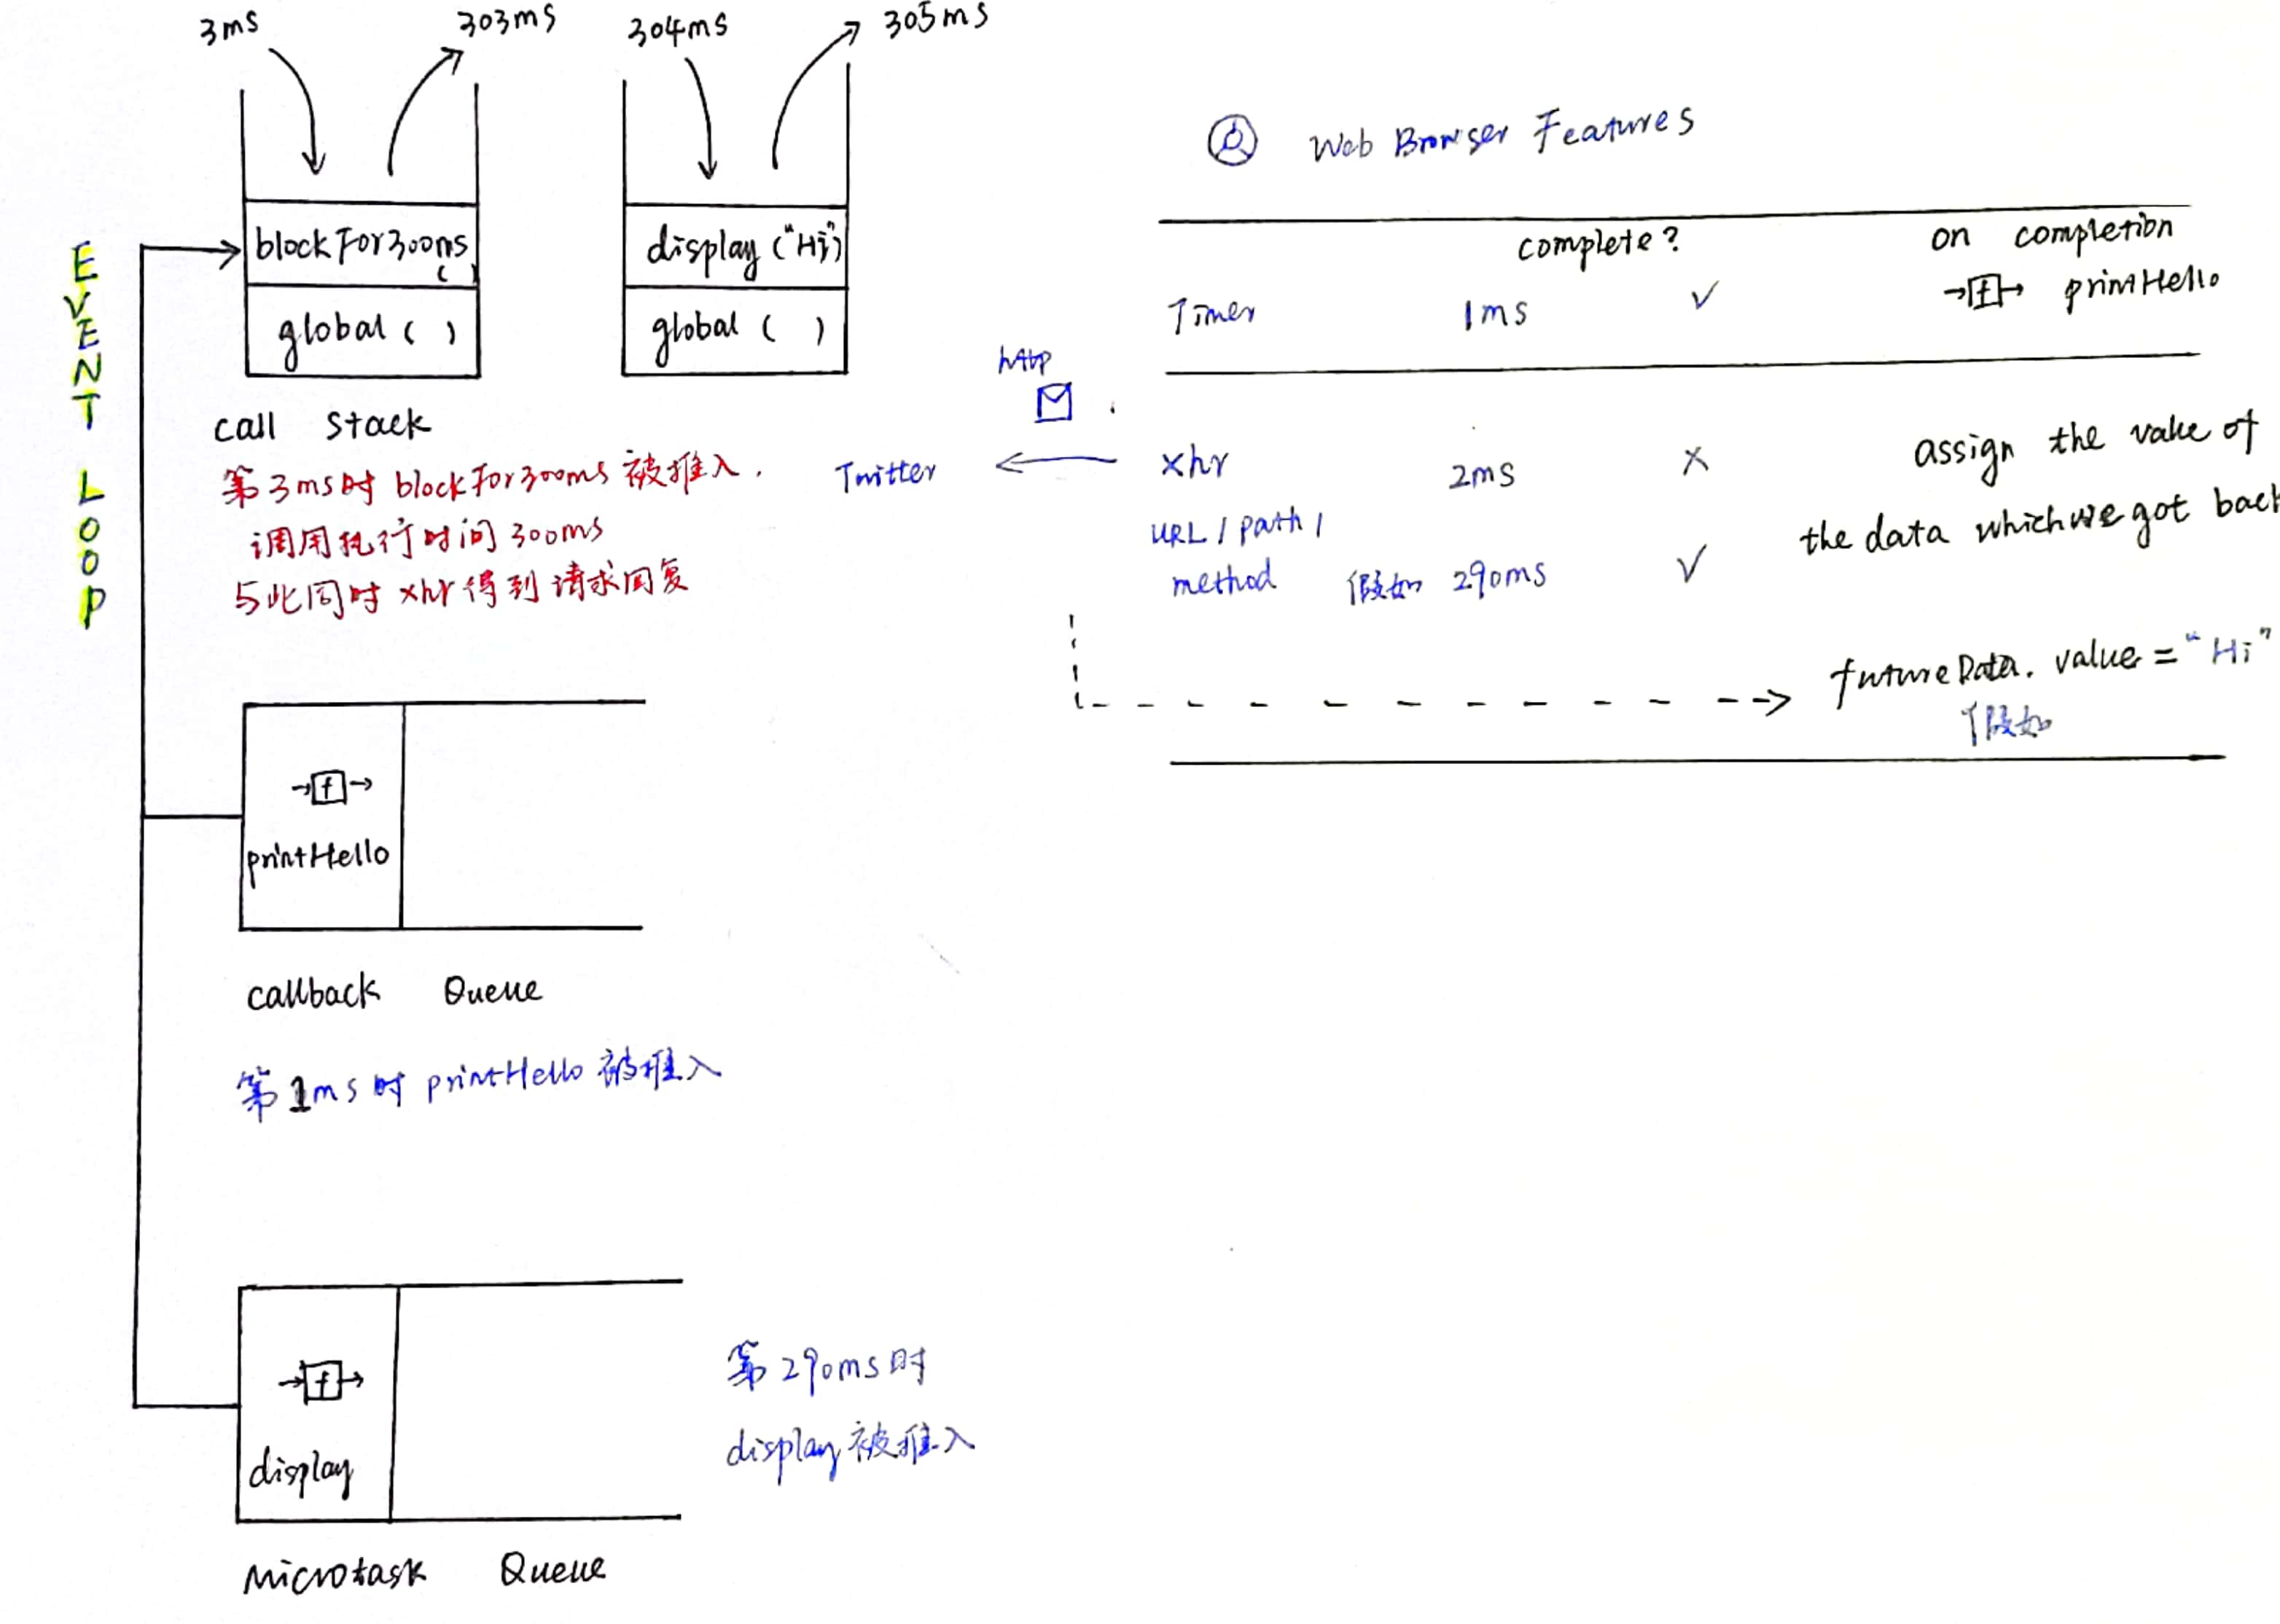 3ms
303ms
304ms
305ms
blockFor300ms
( )
global ( )
display ("Hi")
global ( )
EVENT LOOP
call stack
第3ms时 blockFor300ms 被推入.
调用执行时间 300ms
与此同时 xhr 得到请求回复
Web Browser Features
complete?
on completion
Timer 1ms ✓ →f→ printHello
http
Twitter
xhr 2ms ×
URL / path /
method 假如 290ms ✓
assign the value of
the data which we got back
futureData. value = "Hi"
假如
→f→
printHello
callback Queue
第1ms时 printHello 被推入
→f→
display
第290ms时
display 被推入
Microtask Queue